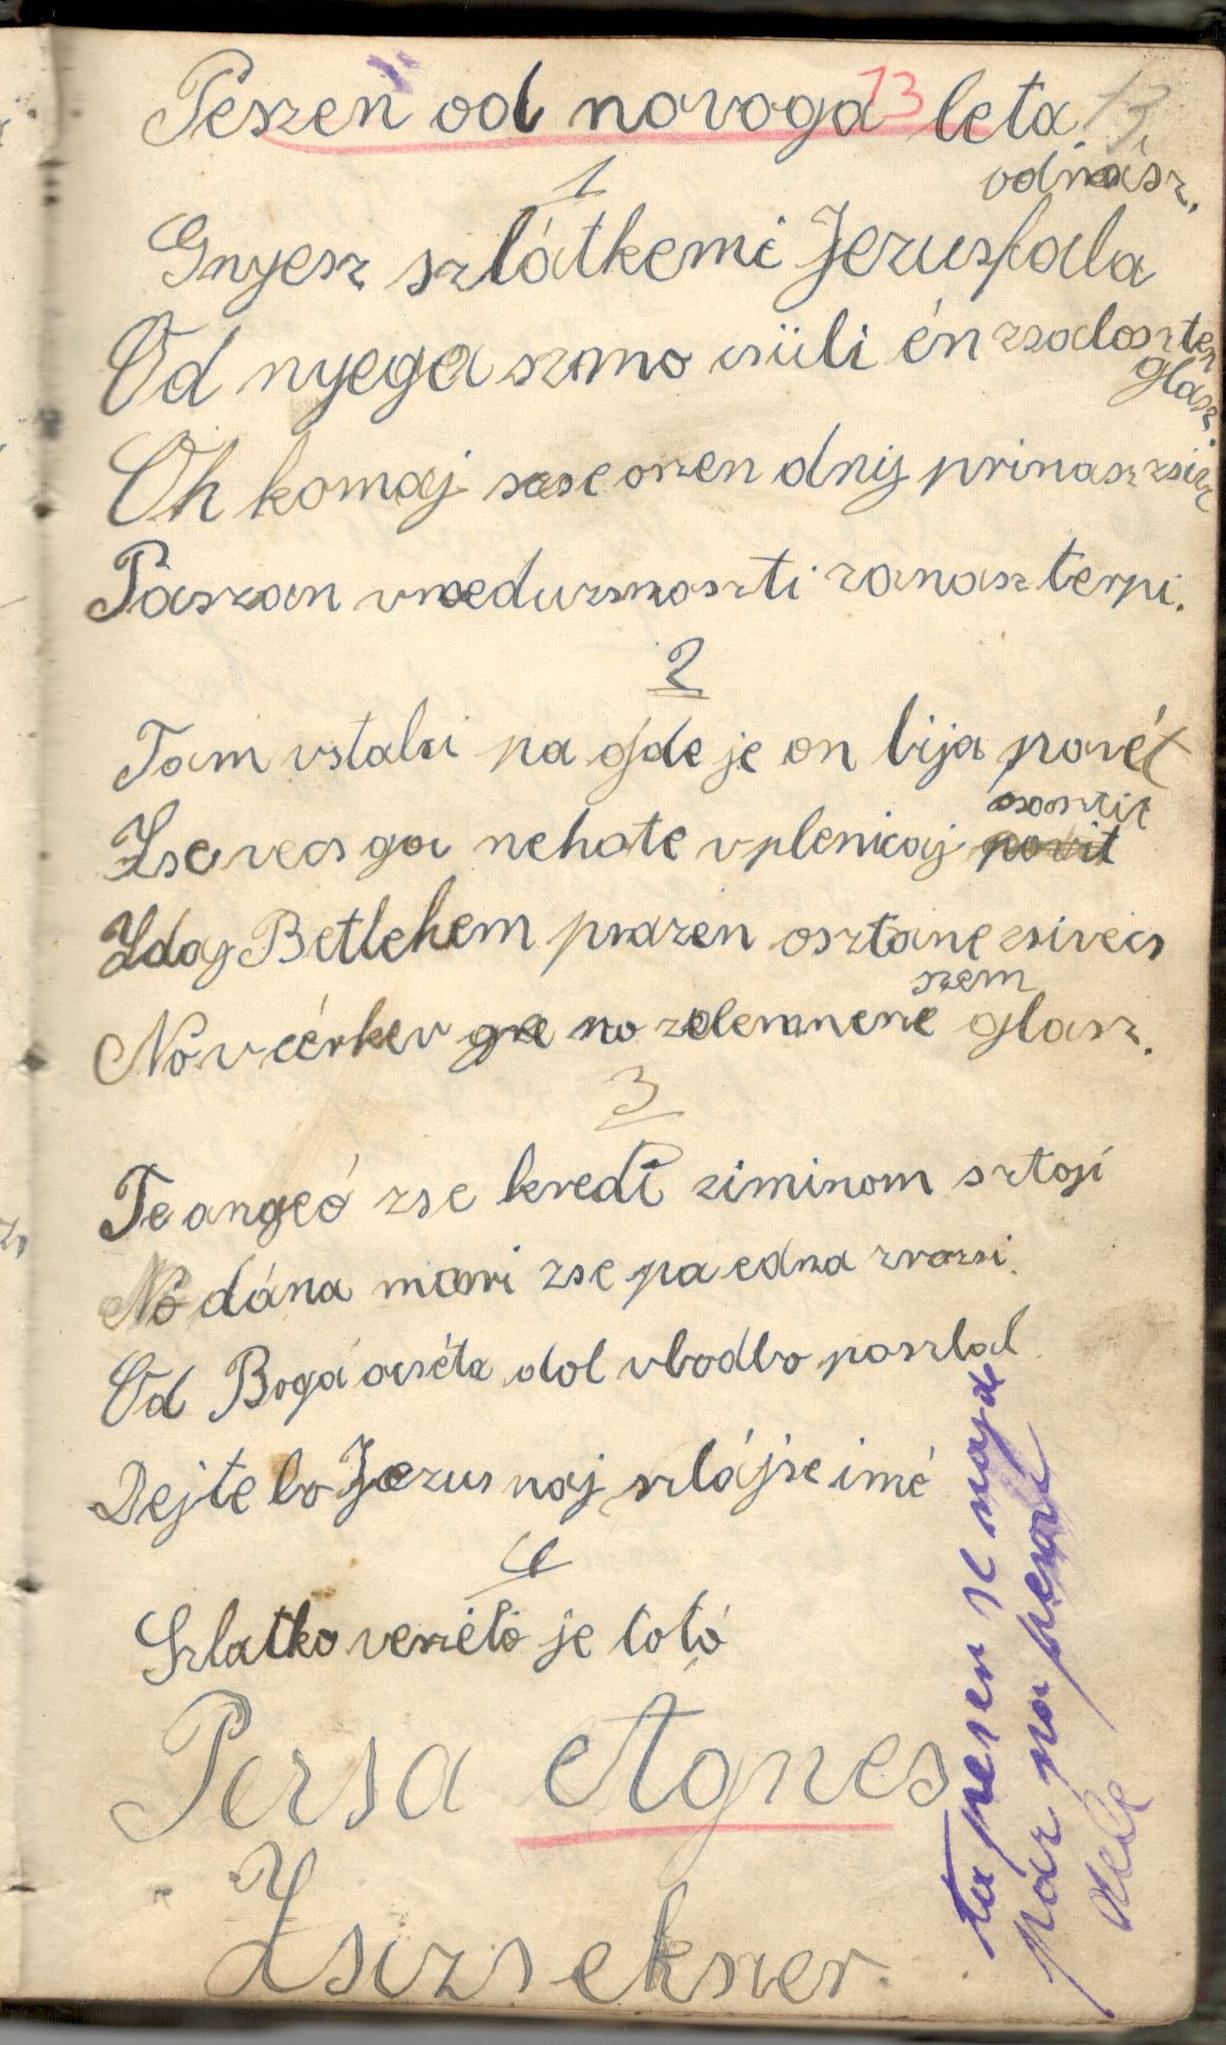 Pészen od novoga leta
13
13,
1
Gnyesz szlátkemi Jezusfala
odnász.
Od nyega szmo csüli én zsaloszten
glász.
Oh komaj oszen dnij prinasz zsivi
Pászan vnedužnoszti zanasz terpi.
2
Tam vstalai pa gde je on bija povét
Zse vecs ga nehote vplenicaj povit
Zdaj Betlehem prazen osztane zsivecs
Nó vcérkev gre no zelemnene glasz.
szem
3
Te angeó zse beredi ziminom sztoji
Nó dána mawi zse pa edna zvazsi.
Od Boga ocséta dol vbodbo poszlal
Dejte bo Jezus naj szlájse imé
4
Szlatko veszéló je totó
Persa Agnes
Zsizsekszer.
ta pesen se najde
par na pesmi
dele